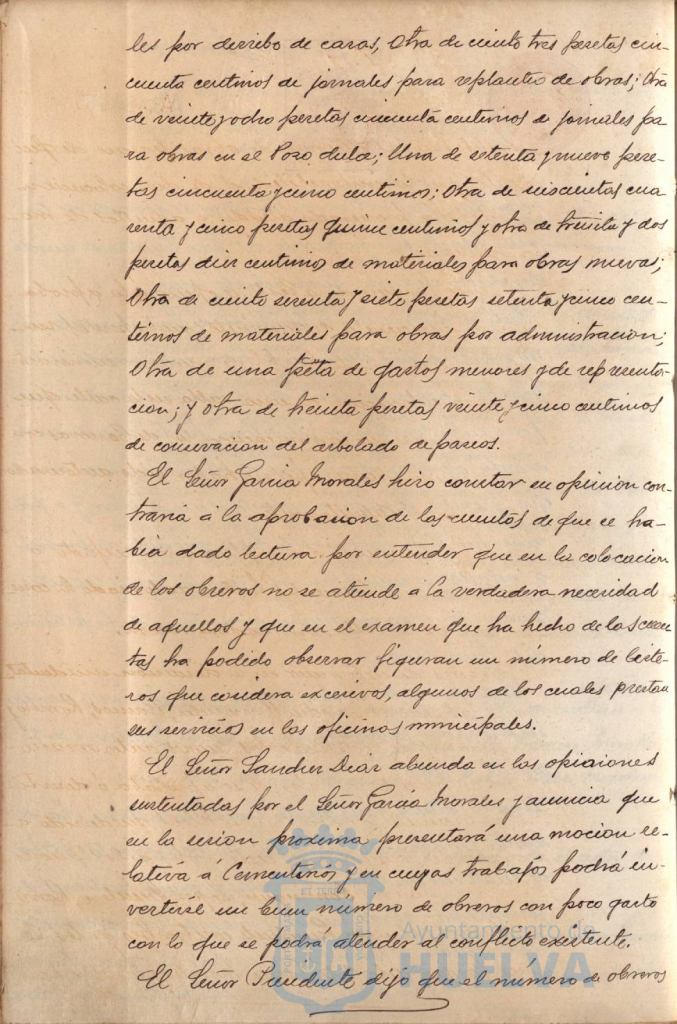 les por derribo de casas, Otra de ciento tres pesetas cin-
cuenta centimos de jornales para replanteo de obras; Otra
de veinte y ocho pesetas cincuenta centimos de jornales pa
ra obras en el Pozo dulce; Una de setenta y nueve pese-
tas cincuenta y cinco centimos; Otra de seiscientas cua
renta y cinco pesetas quince centimos y otra de treinta y dos
pesetas diez centimos de materiales para obras nuevas;
Otra de ciento sesenta y siete pesetas setenta y cinco cen-
timos de materiales para obras por administracion;
Otra de una peseta de gastos menores y de representa-
cion; y otra de treinta pesetas veinte y cinco centimos
de conservacion del arbolado de paseos.
El Señor Garcia Morales hizo constar su opinion con-
traria á la aprobacion de las cuentas de que se ha-
bia dado lectura por entender que en la colocacion
de los obreros no se atiende á la verdadera necesidad
de aquellos y que en el examen que ha hecho de las cuen
tas ha podido observar figuran un número de liste-
ros que cosidera excesivos, algunos de los cuales prestan
sus servicios en las oficinas municipales.
El Señor Sanchez Diaz abunda en las opiniones
sustentadas por el Señor Garcia Morales y anuncia que
en la sesion proxima presentará una mocion re-
lativa á Cementerios y en cuyos trabajos podrá in-
vertirse un buen número de obreros con poco gasto
con lo que se podrá atender al conflicto existente.
El Señor Presidente dijo que el número de obreros
Ayuntamiento de
HUELVA